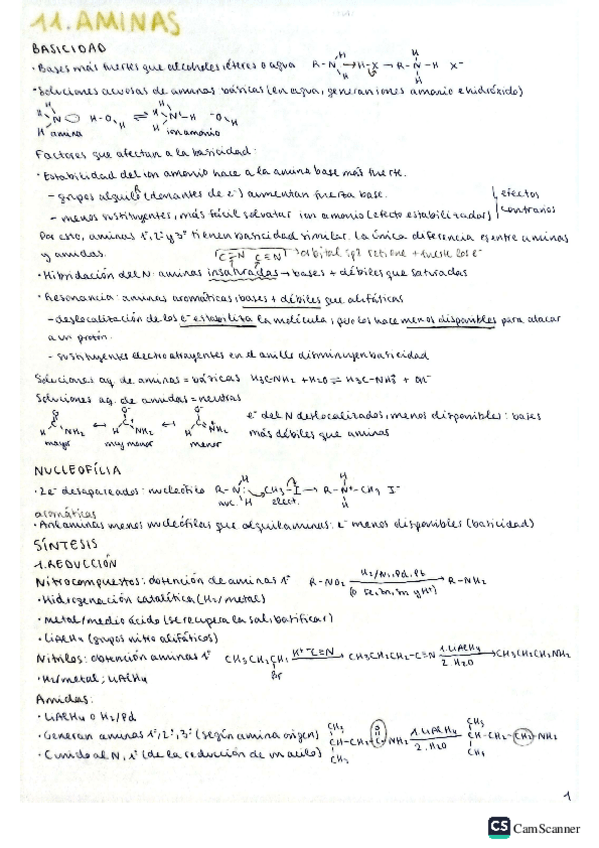 11. AMINAS
BASICIDAD
· Bases más fuertes que alcoholes, éteres o agua R-N H H → H-X → R-N-H H H X⁻
· Soluciones acuosas de aminas básicas (en agua, generan iones amonio e hidróxido)
H H H N H-O H ⇌ H H N⁺-H H ⁻O H
amina ion amonio
Factores que afectan a la basicidad:
· Estabilidad del ion amonio hace a la amina base más fuerte.
- grupos alquilo (donantes de e⁻) aumentan fuerza base.
- menos sustituyentes, más fácil solvatar ion amonio (efecto estabilizador)
efectos contrarios
Por esto, aminas 1ª, 2ª y 3ª tienen basicidad similar. La única diferencia es entre aminas
y amidas.
C=N C≡N orbital sp² retiene + fuerte los e⁻
· Hibridación del N: aminas insaturadas → bases + débiles que saturadas
· Resonancia: aminas aromáticas, bases + débiles que alifáticas
- deslocalización de los e⁻ estabiliza la molécula, pero los hace menos disponibles para atacar
a un protón.
- sustituyentes electroatrayentes en el anillo disminuyen basicidad
Soluciones aq. de aminas = básicas H₃C-NH₂ + H₂O ⇌ H₃C-NH₃⁺ + OH⁻
Soluciones aq. de amidas = neutras
H C O NH₂ ↔ H C⁺ O⁻ NH₂ ↔ H C O⁻ NH₂⁺
mayor muy menor menor
e⁻ del N deslocalizados, menos disponibles: bases
más débiles que aminas
NUCLEOFÍLIA
· 2e⁻ desapareados: nucleófilo R-N: H H CH₃-I → R-N⁺-CH₃ H H I⁻
nuc. elect.
aromáticas
· Arilaminas menos nucleófilas que alquilaminas: e⁻ menos disponibles (basicidad)
SÍNTESIS
1. REDUCCIÓN
Nitrocompuestos: obtención de aminas 1ª R-NO₂ H₂/Ni, Pd, Pt → R-NH₂
· Hidrogenación catalítica (H₂/metal)
· metal/medio ácido (se recupera la sal, basificar)
· LiAlH₄ (grupos nitro alifáticos)
Nitrilos: obtención aminas 1ª CH₃CH₂CH₂ Br K⁺⁻C≡N → CH₃CH₂CH₂-C≡N 1. LiAlH₄ 2. H₂O → CH₃CH₂CH₂CH₂NH₂
· H₂/metal; LiAlH₄
Amidas:
· LiAlH₄ o H₂/Pd
· Generan aminas 1ª, 2ª, 3ª (según amina origen) CH₃ CH-CH₂-C-NH₂ O CH₃ 1. LiAlH₄ 2. H₂O → CH₃ CH-CH₂-CH₂-NH₂ CH₃
· C unido al N, 1º (de la reducción de un acilo)
1
CS CamScanner